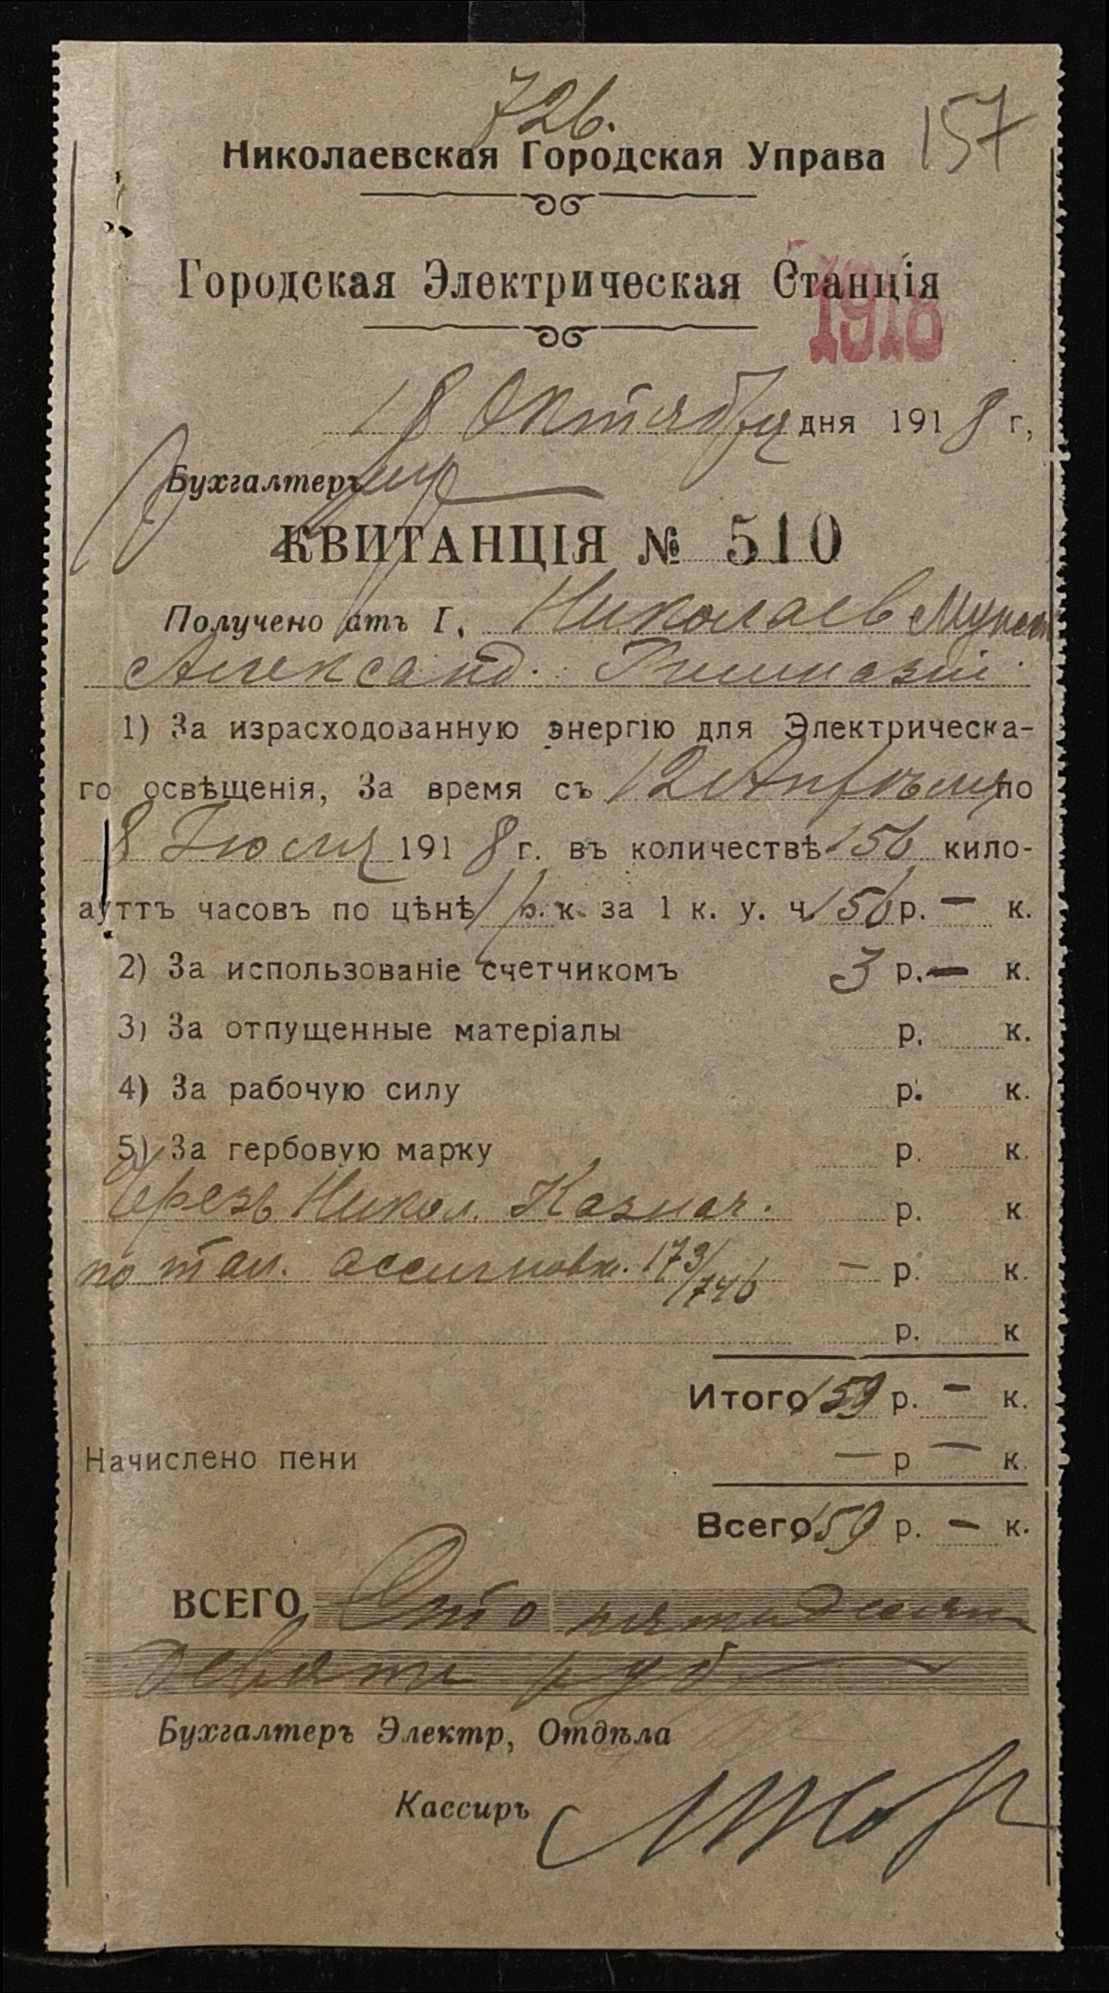 726.
157
Николаевская Городская Управа
Городская Электрическая Станція
1918
18 Октября дня 1918 г,
Бухгалтеръ
КВИТАНЦІЯ № 510
Получено атъ Г, Николаев Мужск
Александ. Гимназіи.
1) За израсходованную энергію для Электрическа-
го освѣщенія, За время съ 12 Апрѣля по
8 Іюля 1918 г. въ количествѣ 156 кило-
ауттъ часовъ по цѣнѣ 1 р. к. за 1 к. у. ч 156 р. — к.
2) За использованіе счетчикомъ 3 р. — к.
3) За отпущенные матеріалы р. к.
4) За рабочую силу р. к.
5) За гербовую марку р. к.
Чрезъ Никол. Казнач. р. к
по тал. ассигновк. 173/1746 — р. к.
р. к
Итого 159 р. — к.
Начислено пени — р — к.
Всего 159 р. — к.
ВСЕГО Сто пятьдесят
девять руб.
Бухгалтеръ Электр, Отдѣла
Кассиръ